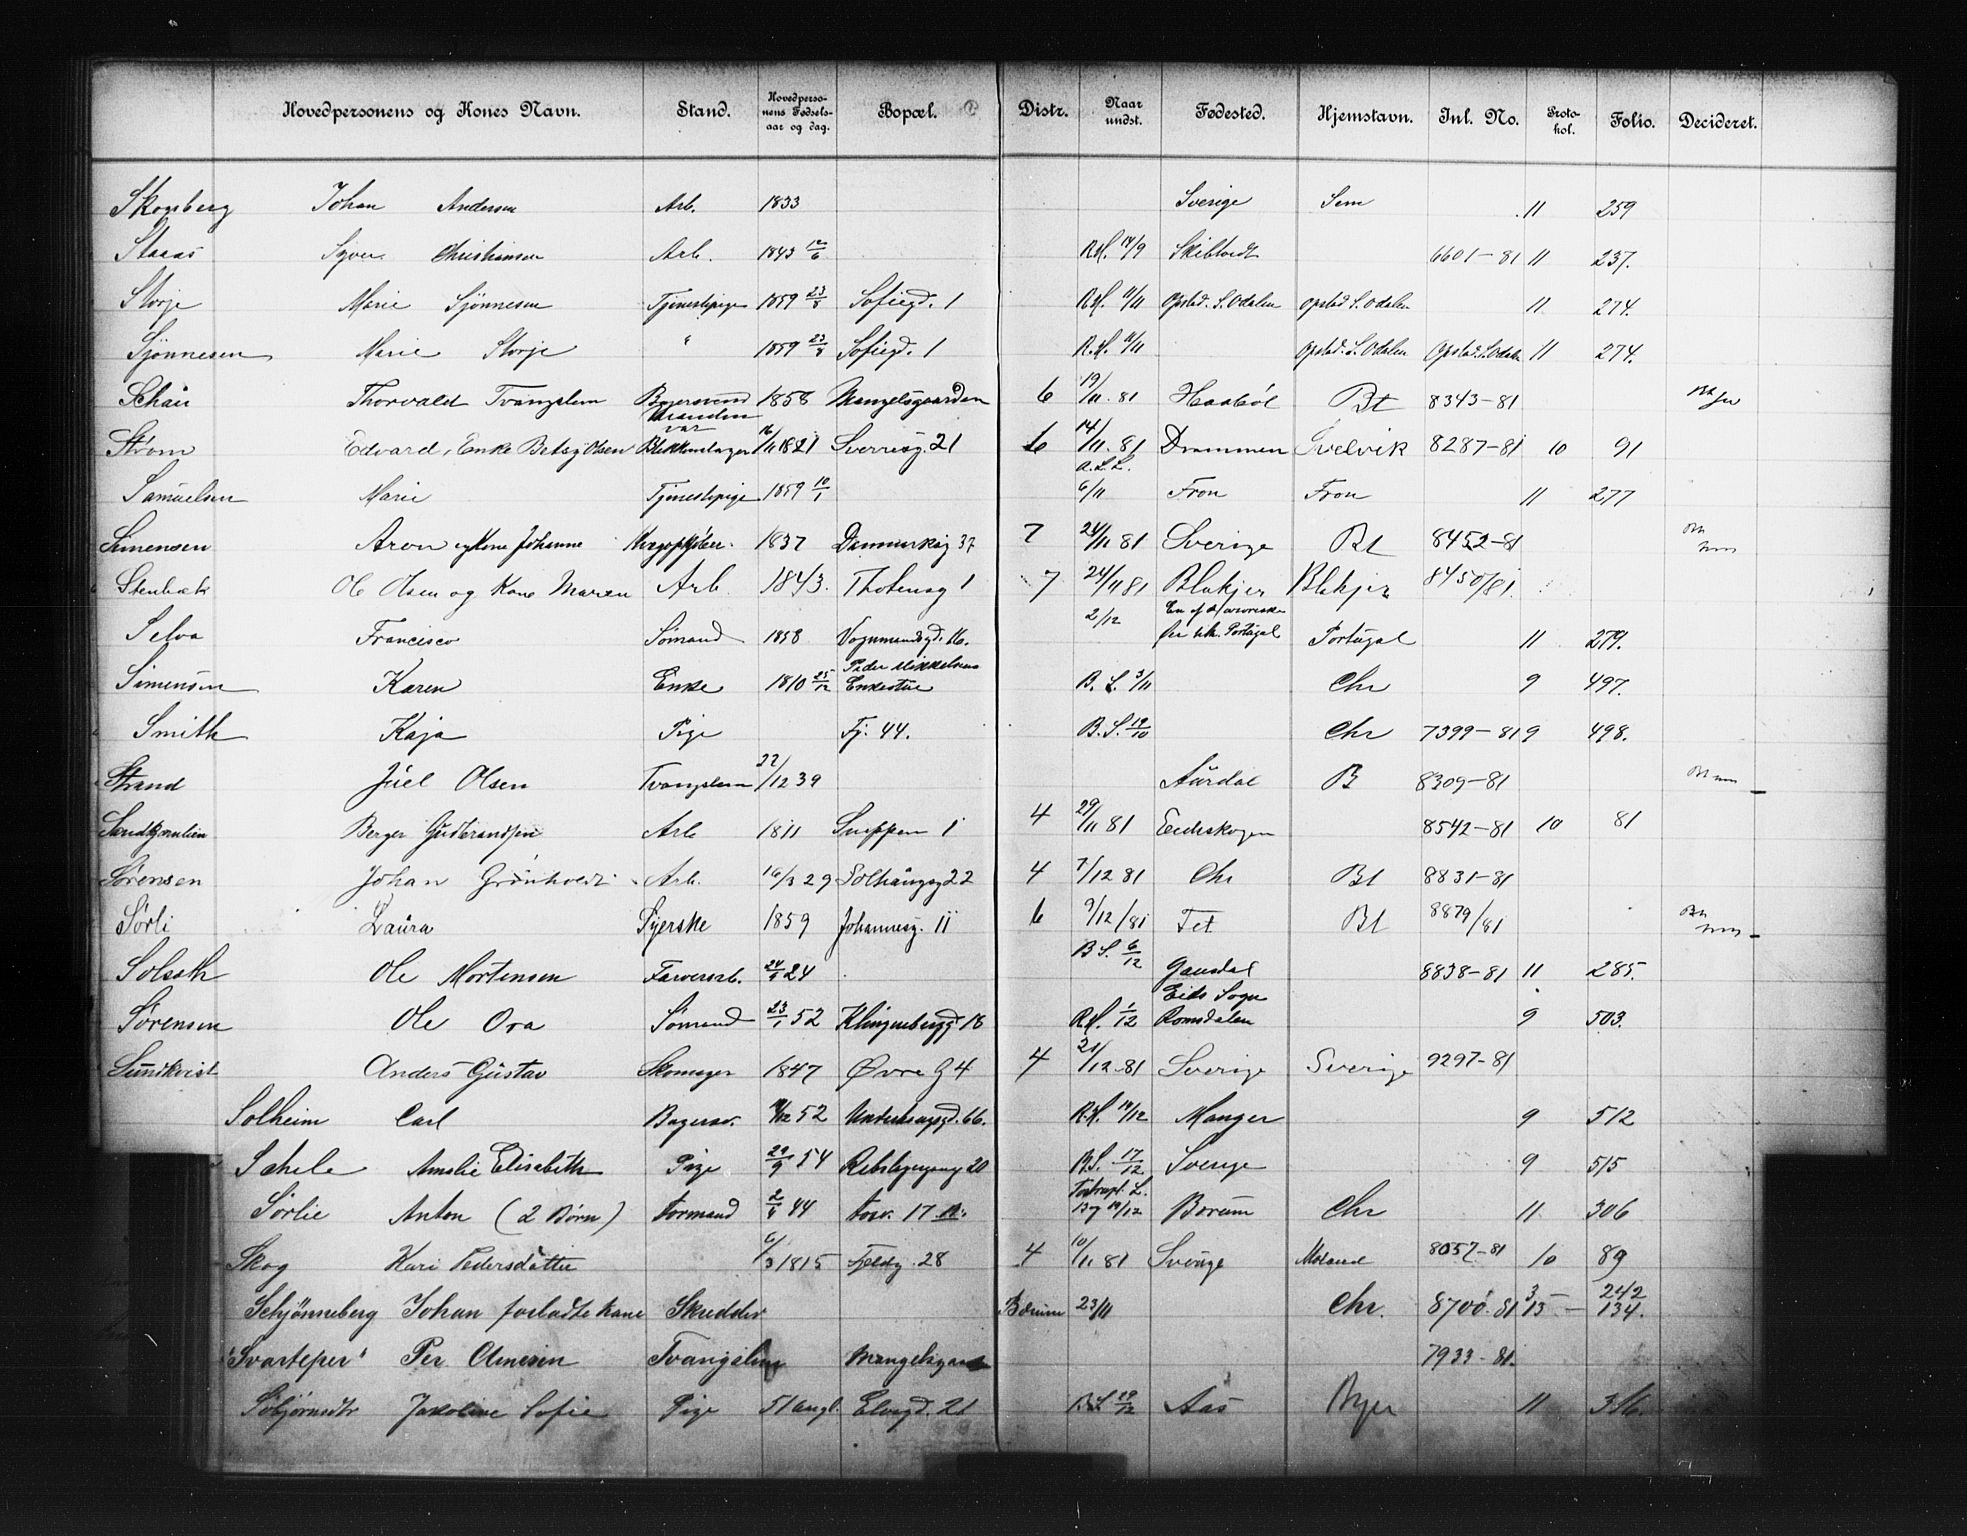 Hovedpersonens og Kones Navn. Stand. Hovedpersonens Fødselsaar og dag. Bopæl. Distr. Naar undst. Fødested. Hjemstavn. Inl. No. Protokol. Folio. Decideret.
Skogsberg Johan Andersen Arb. 1833 Sverige Sem 11 259
Staaas Syver Christiansen Arb. 1843 12/6 R.H. 14/9 Skibtvedt 6601-81 11 237.
Storje Marie Sjønnesen Tjenestepige 1859 23/8 Sofiegd. 1 R.H. 11/11 Opstad. S. Odalen Opstad S. Odalen 11 274.
Sjønnesen Marie Storje " 1859 23/8 Sofiegd. 1 R.H. 11/11 Opstad. S. Odalen Opstad. S. Odalen 11 274.
Schau Thorvald Tvangslem Bagersvend 1858 Mangelsgaarden 6 19/11 81 Haabøl Bt 8343-81
Strøm Edvard, Enke Betsy Olsen Blikkenslager 16/11 1821 Sverresg. 21 6 14/11 81 Drammen Svelvik 8287-81 10 91
Samuelsen Marie Tjenestepige 1859 10/1 A.L.L. 6/11 Fron Fron 11 277
Simensen Aron og Kone Johanne 1837 Danmarksg 37 7 24/11 81 Sverige Bt 8452-81
Stenbæk Ole Olsen og Kone Maren Arb. 1843. Thotensg 1 7 24/11 81 Blakjer Blakjer 8450/81.
Selva Francisco Sømand 1858 Vognmandsgd. 16. 2/12 Portugal Portugal 11 279.
Simensen Karen Enke 1810 25/12 Peder Mikkelsens Enkestue B. S. 3/11 Chr 9 497.
Smith Kaja Pige Fj. 44. B.S. 19/10 Chr 7399-81 9 498.
Strand Juel Olsen Tvangslem 22/12 39 Aurdal B 8309-81
Berger Gudbrandsen Arb 1811 Sneppen 1 4 29/11 81 Eidskogen 8542-81 10 81
Sørensen Johan Grønholdt Arb. 16/3 29 Solhaugsg 22 4 7/12 81 Chr Bt 8831-81
Sørli Laura Syerske 1859 Johannesg. 11 6 9/12/81 Fet Bt 8879/81
Solseth Ole Mortensen Farverarb. 24/9 24 B S. 6/12 Gausdal 8838-81 11 285.
Sørensen Ole Ora Sømand 23/1 52 Klingenbergd. 18 R.H. 1/12 Eids Sogn Romsdalen 9 503.
Sundkvist Anders Gustav Skomager 1847 Øvre G 4 4 21/12 81 Sverige Sverige 9297-81
Solheim Carl Bagersv. 52 66. R.H. 14/12 Manger 9 512
Schele Amalie Elisabeth Pige 29/9 54 Rebslagergang 20 B.S. 17/12 Sverige 9 515
Sørlie Anton (2 Børn) Formand 2/8 44 17 Bg 14/12 Borum Chr 11 306
Skog Kari Pedersdatter 6/3 1815 Fjeldg. 28 4 10/11 81 Sverige 8057-81 10 89
Schjønneberg Johan forladte kone Skredder Bærum 23/11 Chr. 8700-81 3 - 13 - 242 134.
"Svarteper" Per Tvangslem Mangelsgaarden 7933-81.
Jakoline Sofie Pige 51 angl. Elvegd. 21 B.S. 29/12 Aas Byen 11 316.